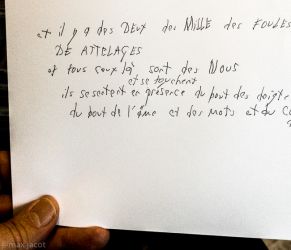 et il y a des DEUX des MILLE des FOULES
DE ATTELAGES
et tous ceux là sont des NOUS
et se touchent
ils se sentent en présence du bout des doigts
du bout de l'âme et des mots et du
© max jacot